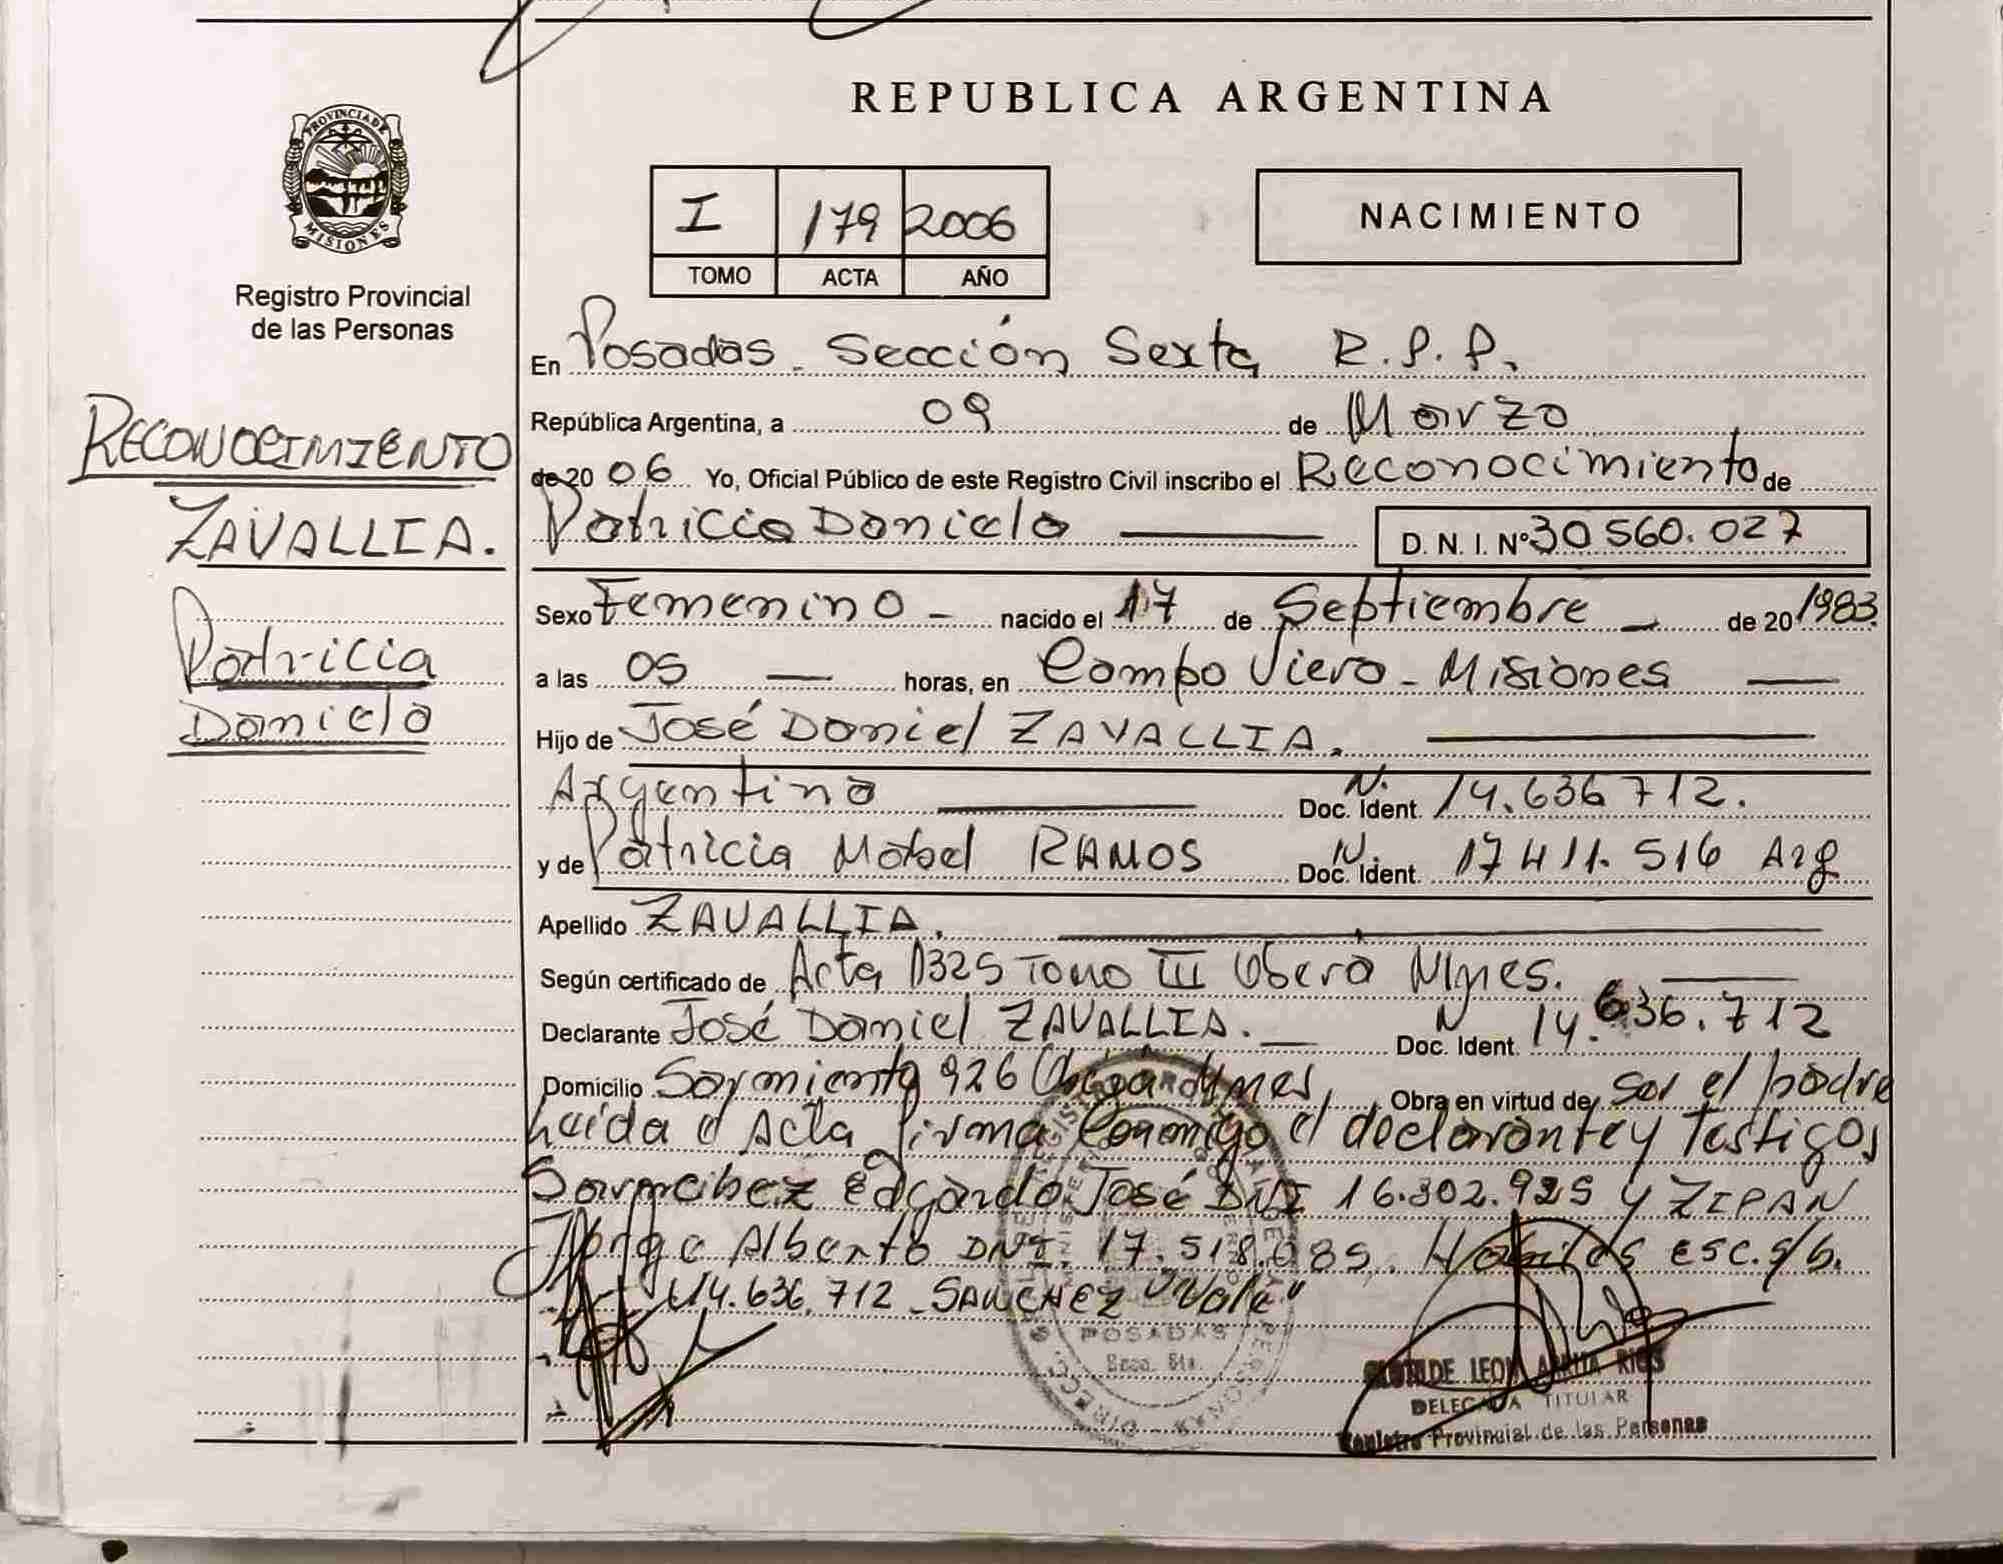 REPUBLICA ARGENTINA
PROVINCIA DE MISIONES
Registro Provincial
de las Personas
I 179 2006
TOMO ACTA AÑO
NACIMIENTO
RECONOCIMIENTO
ZAVALLIA.
Patricia
Daniela
En Posadas - Sección Sexta R.P.P.
República Argentina, a 09 de Marzo
de 20 06 Yo, Oficial Público de este Registro Civil inscribo el Reconocimiento de
Patricia Daniela D. N. I. Nº 30 560.027
Sexo Femenino - nacido el 17 de Septiembre - de 20 1983.
a las 05 horas, en Campo Viera - Misiones
Hijo de José Daniel ZAVALLIA.
Argentino Doc. Ident. N. 14.636 712.
y de Patricia Mabel RAMOS Doc. Ident. N. 17 411. 516 Arg
Apellido ZAVALLIA.
Según certificado de Acta 1325 Tomo III Oberá Mnes.
Declarante José Daniel ZAVALLIA. Doc. Ident. N 14.636.712
Domicilio Sarmiento 926 Mnes, Obra en virtud de Ser el padre
Leída el Acta firma Conmigo el declarante y Testigos
Edgardo José DNI 16.302.925 y ZIPAN
Jorge Alberto DNI. 17.518.085. Habiles esc. s/b.
14.636.712 - SANCHEZ "Vale"
POSADAS
Secc. 6ta.
DELEGADA TITULAR
Registro Provincial de las Personas